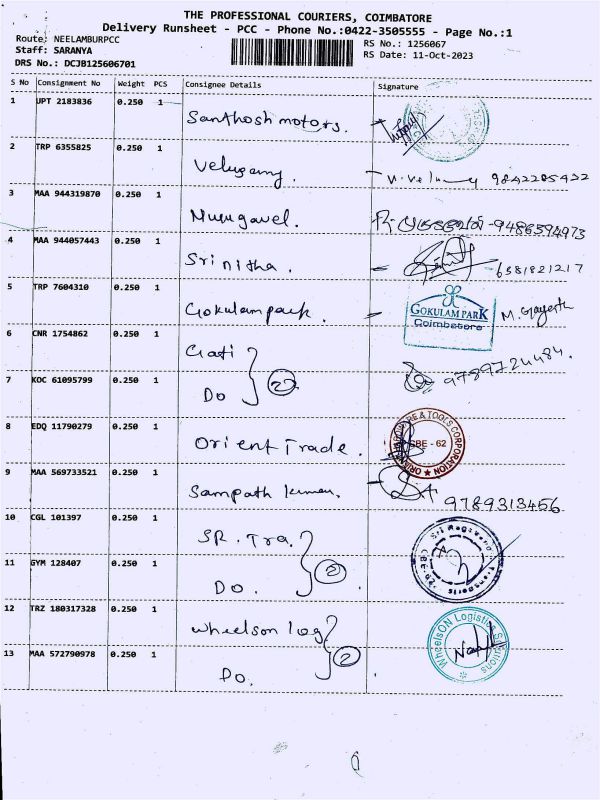 THE PROFESSIONAL COURIERS, COIMBATORE
Delivery Runsheet - PCC - Phone No.:0422-3505555 - Page No.:1
Route: NEELAMBURPCC
RS No.: 1256067
Staff: SARANYA
RS Date: 11-Oct-2023
DRS No.: DCJB125606701
S No Consignment No Weight PCS Consignee Details Signature
1 UPT 2183836 0.250 1 Santhosh motors.
2 TRP 6355825 0.250 1 Velusamy. 9842285422
3 MAA 944319870 0.250 1 Murugavel. -9486594973
4 MAA 944057443 0.250 1 Srinitha. 6381821217
5 TRP 7604310 0.250 1 Gokulampark. GOKULAM PARK
Coimbatore
6 CNR 1754862 0.250 1 Gati
7 KOC 61095799 0.250 1 Do 2 9789724484.
8 EDQ 11790279 0.250 1 Orient Trade. & TOOLS CORPORATION CBE - 62
9 MAA 569733521 0.250 1 Sampath Kumar. 9789313456
10 CGL 101397 0.250 1 SR. Tra.
11 GYM 128407 0.250 1 Do. 2
12 TRZ 180317328 0.250 1 Wheelson log WheelsON Logistics Solutions
13 MAA 572790978 0.250 1 Do. 2